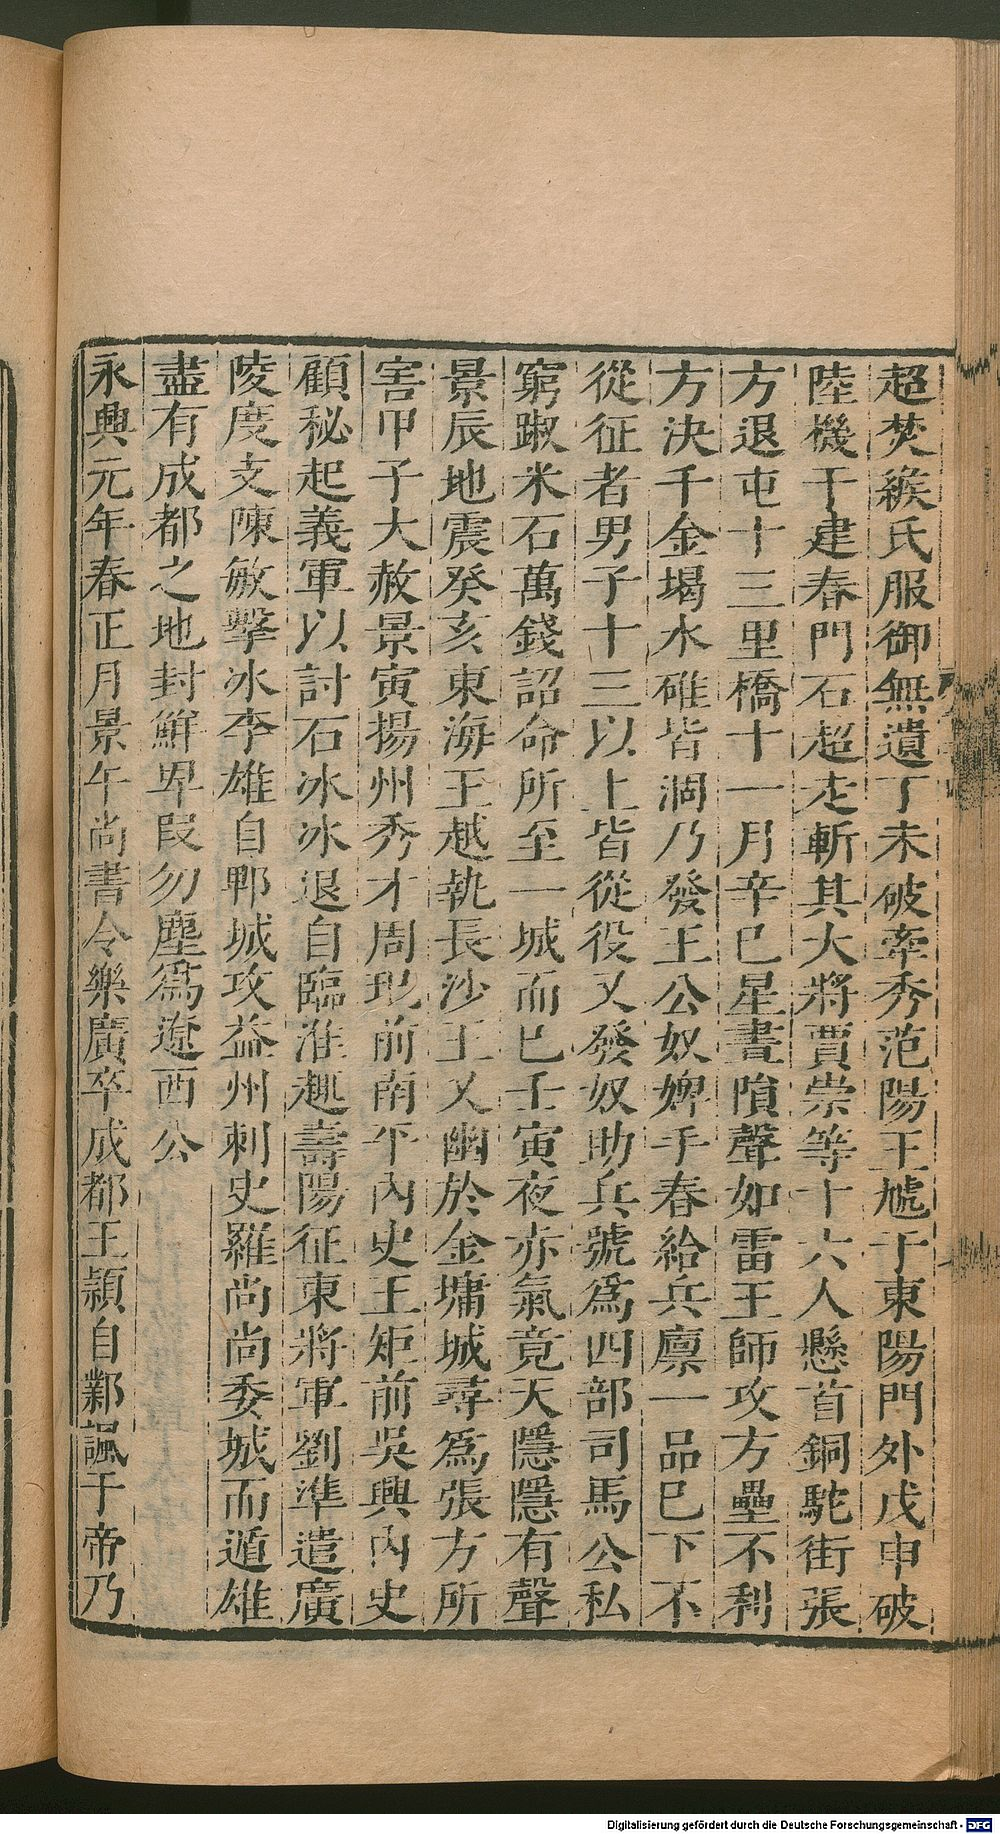 超焚緱氏服御無遺丁未破牽秀范陽王虓于東陽門外戊申破
陸機于建春門石超走斬其大將賈崇等十六人懸首銅駝街張
方退屯十三里橋十一月辛巳星晝隕聲如雷王師攻方壘不利
方決千金堨水碓皆涸乃發王公奴婢手舂給兵廩一品已下不
從征者男子十三以上皆從役又發奴助兵號爲四部司馬公私
窮踧米石萬錢詔命所至一城而已壬寅夜赤氣竟天隱隱有聲
景辰地震癸亥東海王越執長沙王乂幽於金墉城尋爲張方所
害甲子大赦景寅揚州秀才周玘前南平內史王矩前吳興內史
顧秘起義軍以討石冰冰退自臨淮趣壽陽征東將軍劉準遣廣
陵度支陳敏擊冰李雄自郫城攻益州刺史羅尚尚委城而遁雄
盡有成都之地封鮮卑段勿塵爲遼西公
永興元年春正月景午尚書令樂廣卒成都王頴自鄴諷于帝乃
Digitalisierung gefördert durch die Deutsche Forschungsgemeinschaft - DFG